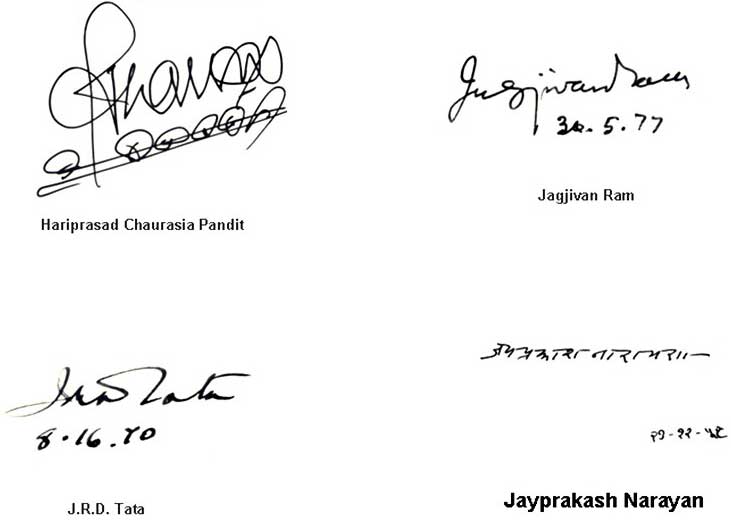 Hariprasad Chaurasia Pandit
Jagjivan Ram
30.5.77
Jagjivan Ram
Tata
8.16.70
J.R.D. Tata
जयप्रकाश नारायण
Jayprakash Narayan